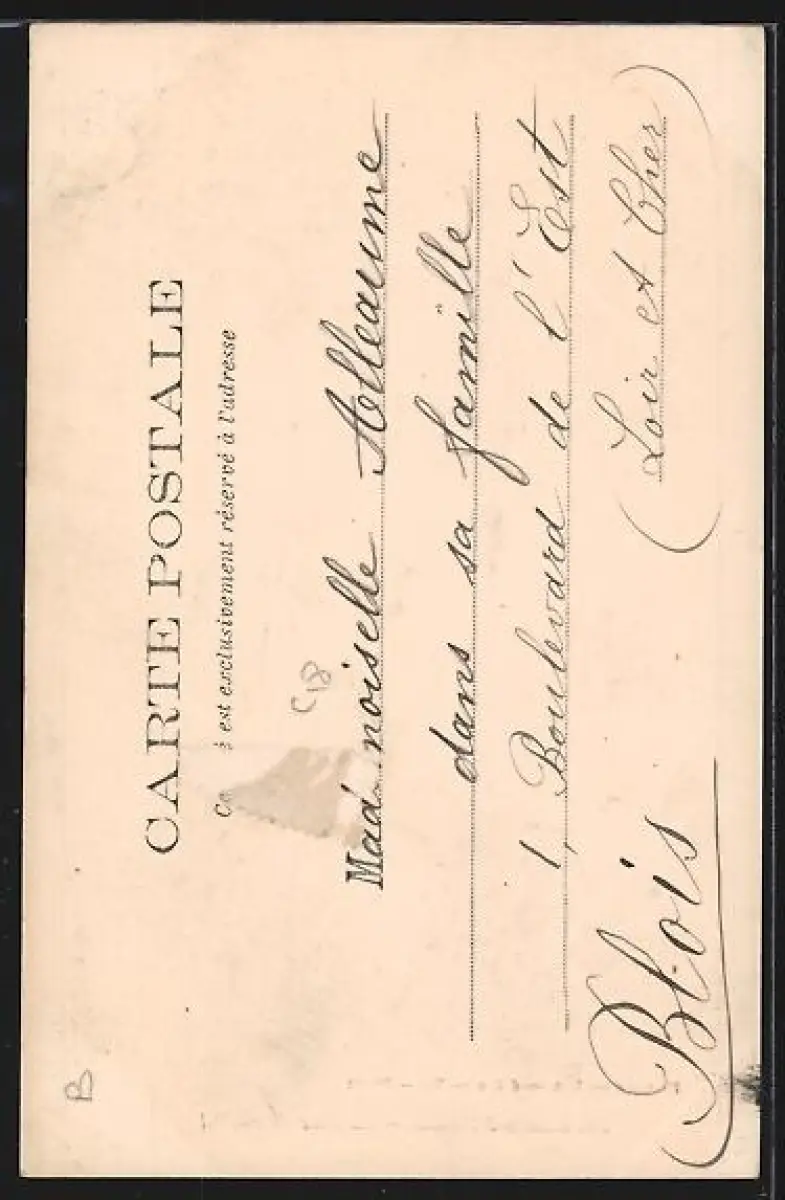 CARTE POSTALE
Ce est exclusivement réservé à l'adresse
C18
Mad noiselle Alleaume
dans sa famille
1, Boulevard de l'Est
Blois (Loir et Cher)
B